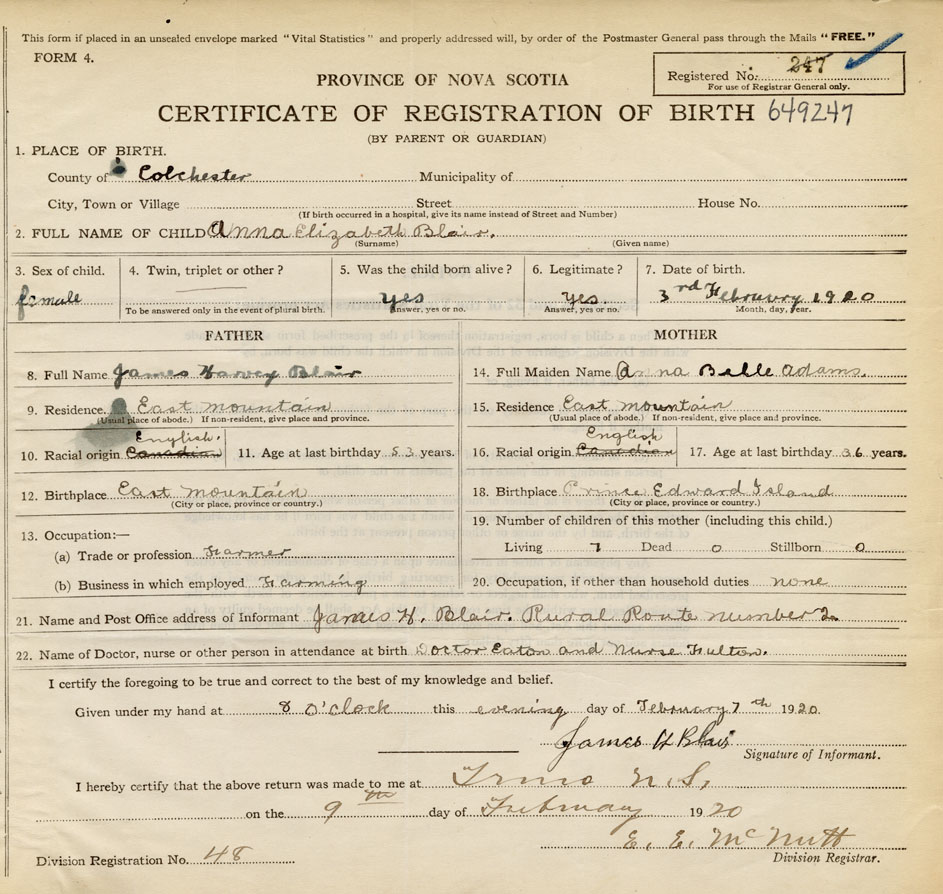 This form if placed in an unsealed envelope marked "Vital Statistics" and properly addressed will, by order of the Postmaster General pass through the Mails "FREE."
FORM 4.
Registered No. 247
For use of Registrar General only.
PROVINCE OF NOVA SCOTIA
CERTIFICATE OF REGISTRATION OF BIRTH 649247
(BY PARENT OR GUARDIAN)
1. PLACE OF BIRTH.
County of Colchester Municipality of
City, Town or Village Street House No.
(If birth occurred in a hospital, give its name instead of Street and Number)
2. FULL NAME OF CHILD Anna Elizabeth Blair.
(Surname) (Given name)
3. Sex of child. 4. Twin, triplet or other? 5. Was the child born alive? 6. Legitimate? 7. Date of birth.
female yes yes. 3rd February 1920
To be answered only in the event of plural birth. Answer, yes or no. Answer, yes or no. Month, day, year.
FATHER MOTHER
8. Full Name James Harvey Blair 14. Full Maiden Name Anna Belle Adams.
9. Residence. East Mountain 15. Residence East Mountain
(Usual place of abode.) If non-resident, give place and province. (Usual place of abode.) If non-resident, give place and province.
English. English
10. Racial origin Canadian 11. Age at last birthday 53 years. 16. Racial origin Canadian 17. Age at last birthday 36 years.
12. Birthplace East Mountain 18. Birthplace Prince Edward Island
(City or place, province or country.) (City or place, province or country.)
13. Occupation:— 19. Number of children of this mother (including this child.)
(a) Trade or profession Farmer Living 7 Dead 0 Stillborn 0
(b) Business in which employed Farming 20. Occupation, if other than household duties none
21. Name and Post Office address of Informant James H. Blair. Rural Route number 2.
22. Name of Doctor, nurse or other person in attendance at birth Doctor Eaton and Nurse Fulton.
I certify the foregoing to be true and correct to the best of my knowledge and belief.
Given under my hand at 8 O'clock this evening day of February 7th 1920
James H Blair
Signature of Informant.
I hereby certify that the above return was made to me at Truro N.S,
on the 9th day of February 1920
E. E. McNutt
Division Registration No. 48 Division Registrar.